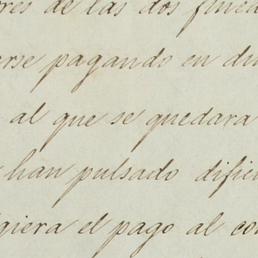 res de las dos finca
erse pagando en di
al que se quedara
han pulsado dific
giera el pago al con